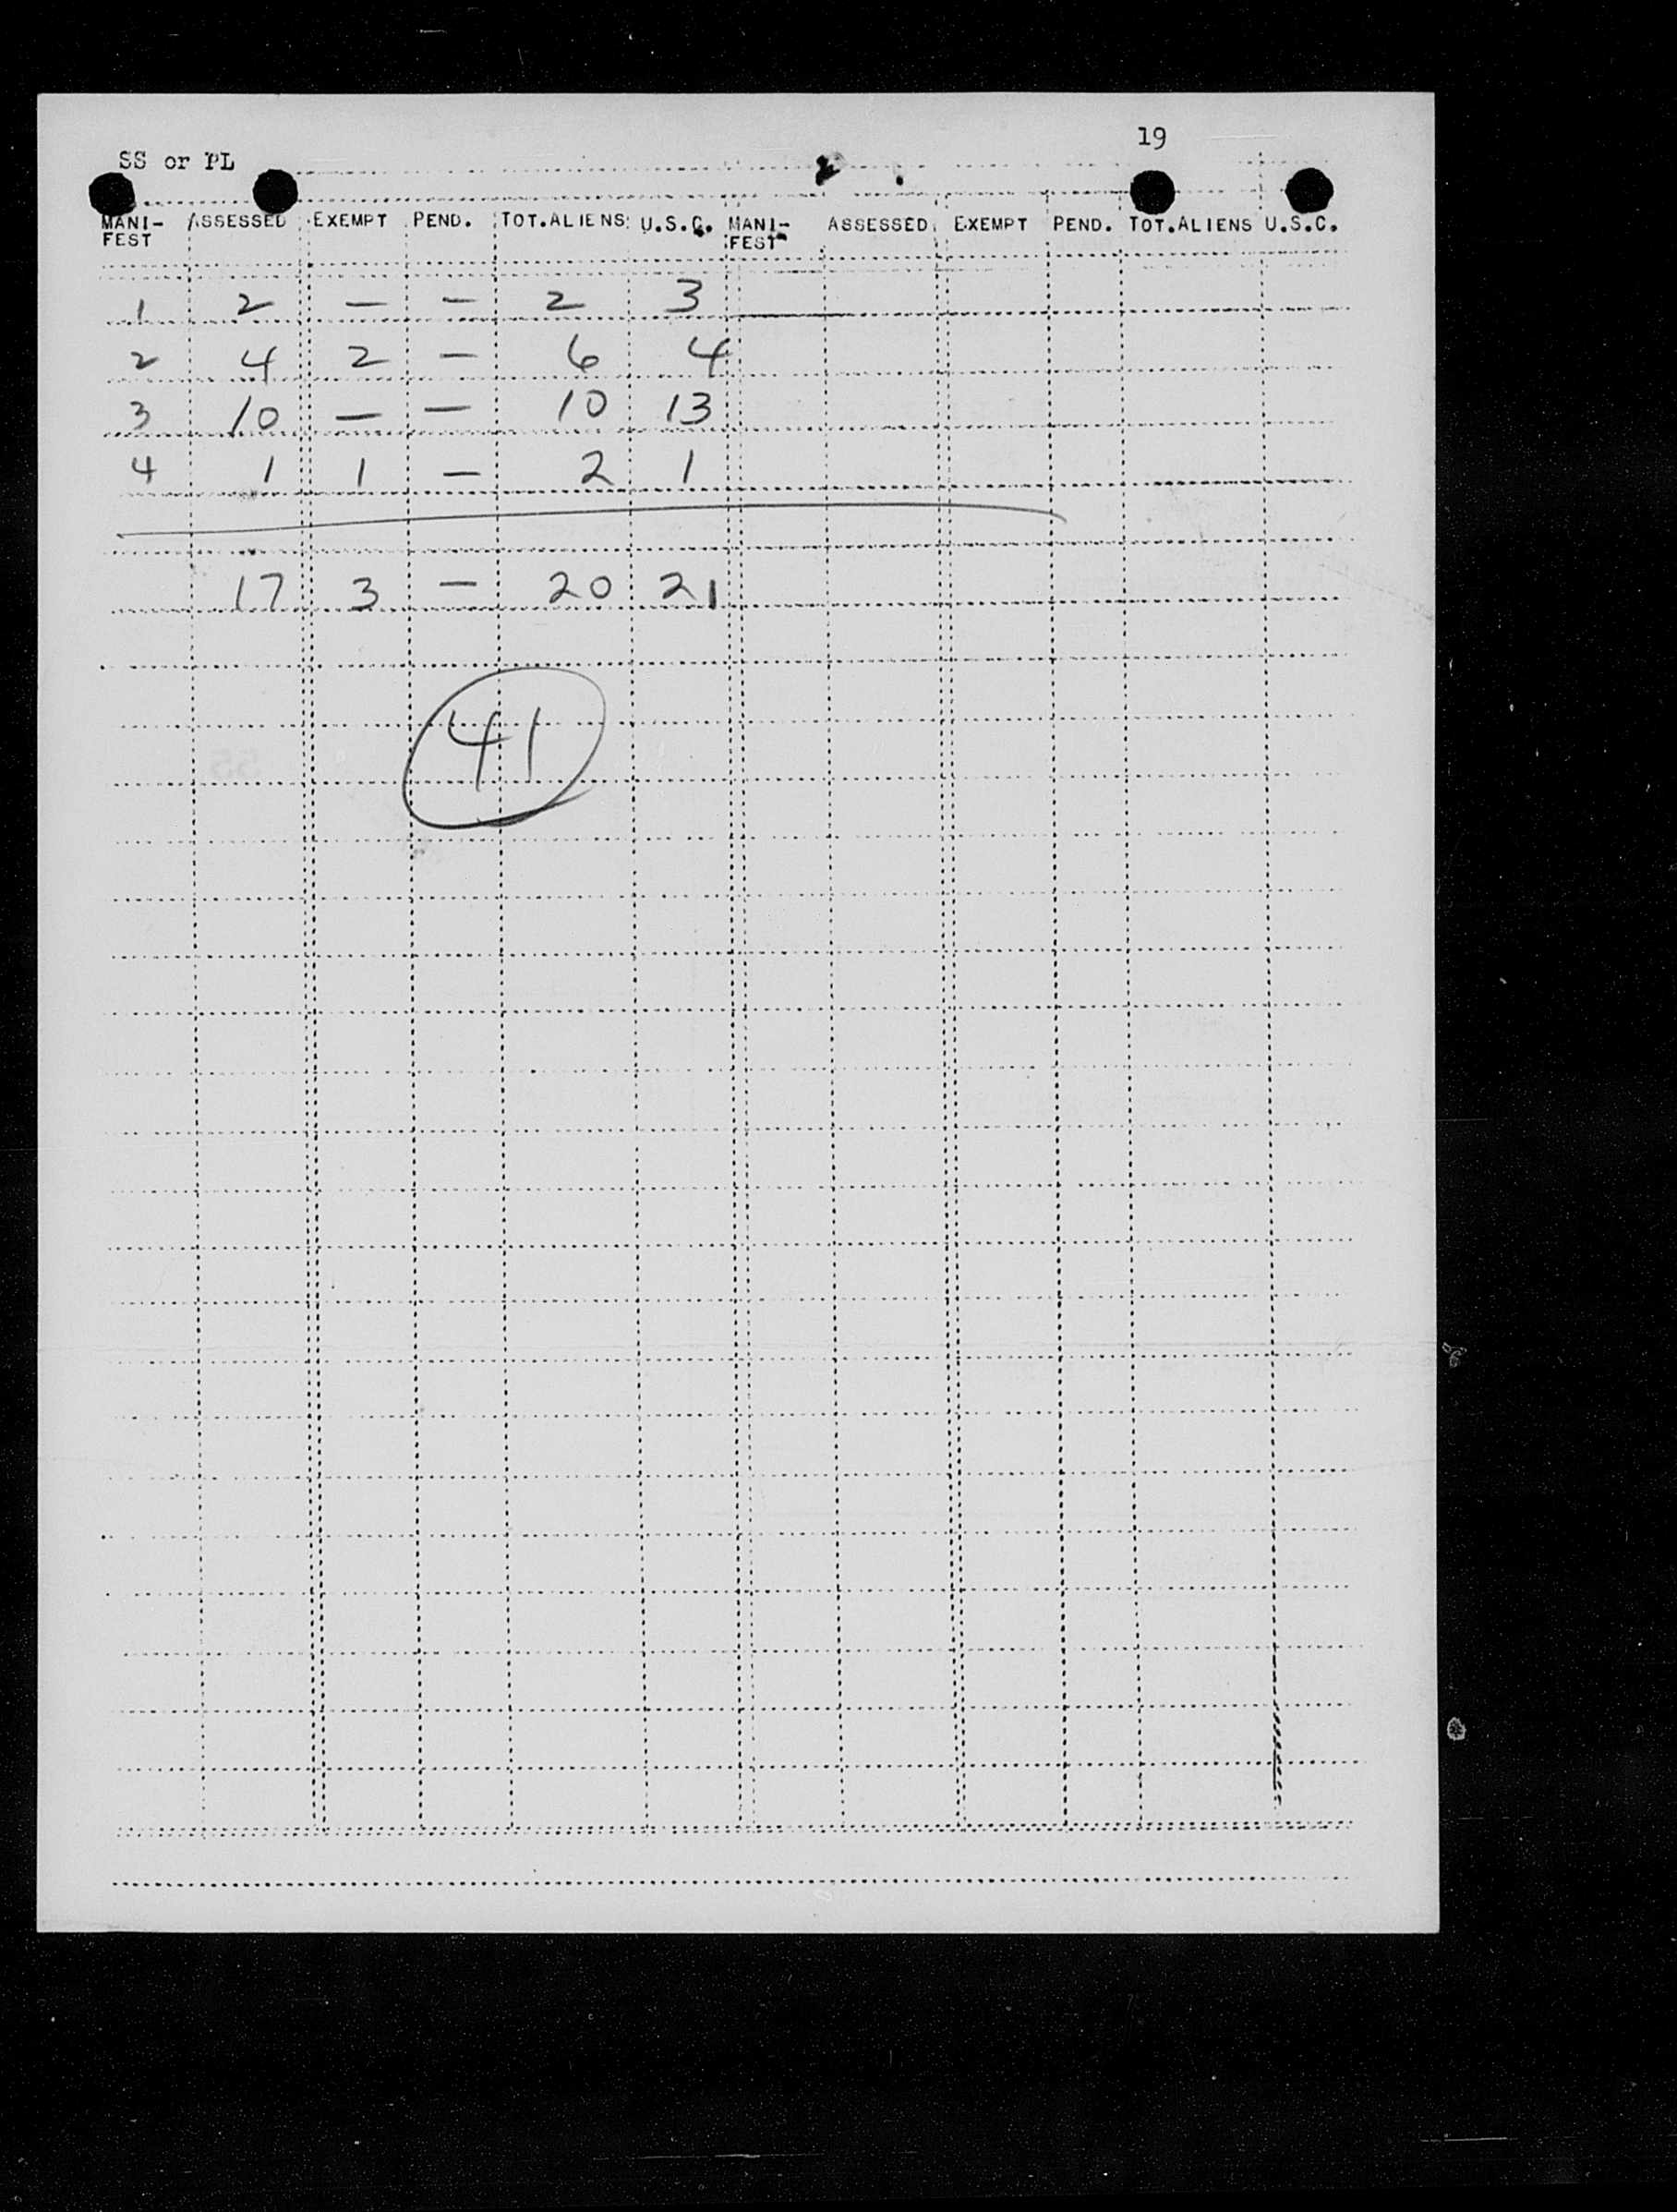 19
SS or PL
MANI-FEST ASSESSED EXEMPT PEND. TOT.ALIENS U.S.C. MANI-FEST ASSESSED EXEMPT PEND. TOT.ALIENS U.S.C.
1 2 — — 2 3
2 4 2 — 6 4
3 10 — — 10 13
4 1 1 — 2 1
17 3 — 20 21
41